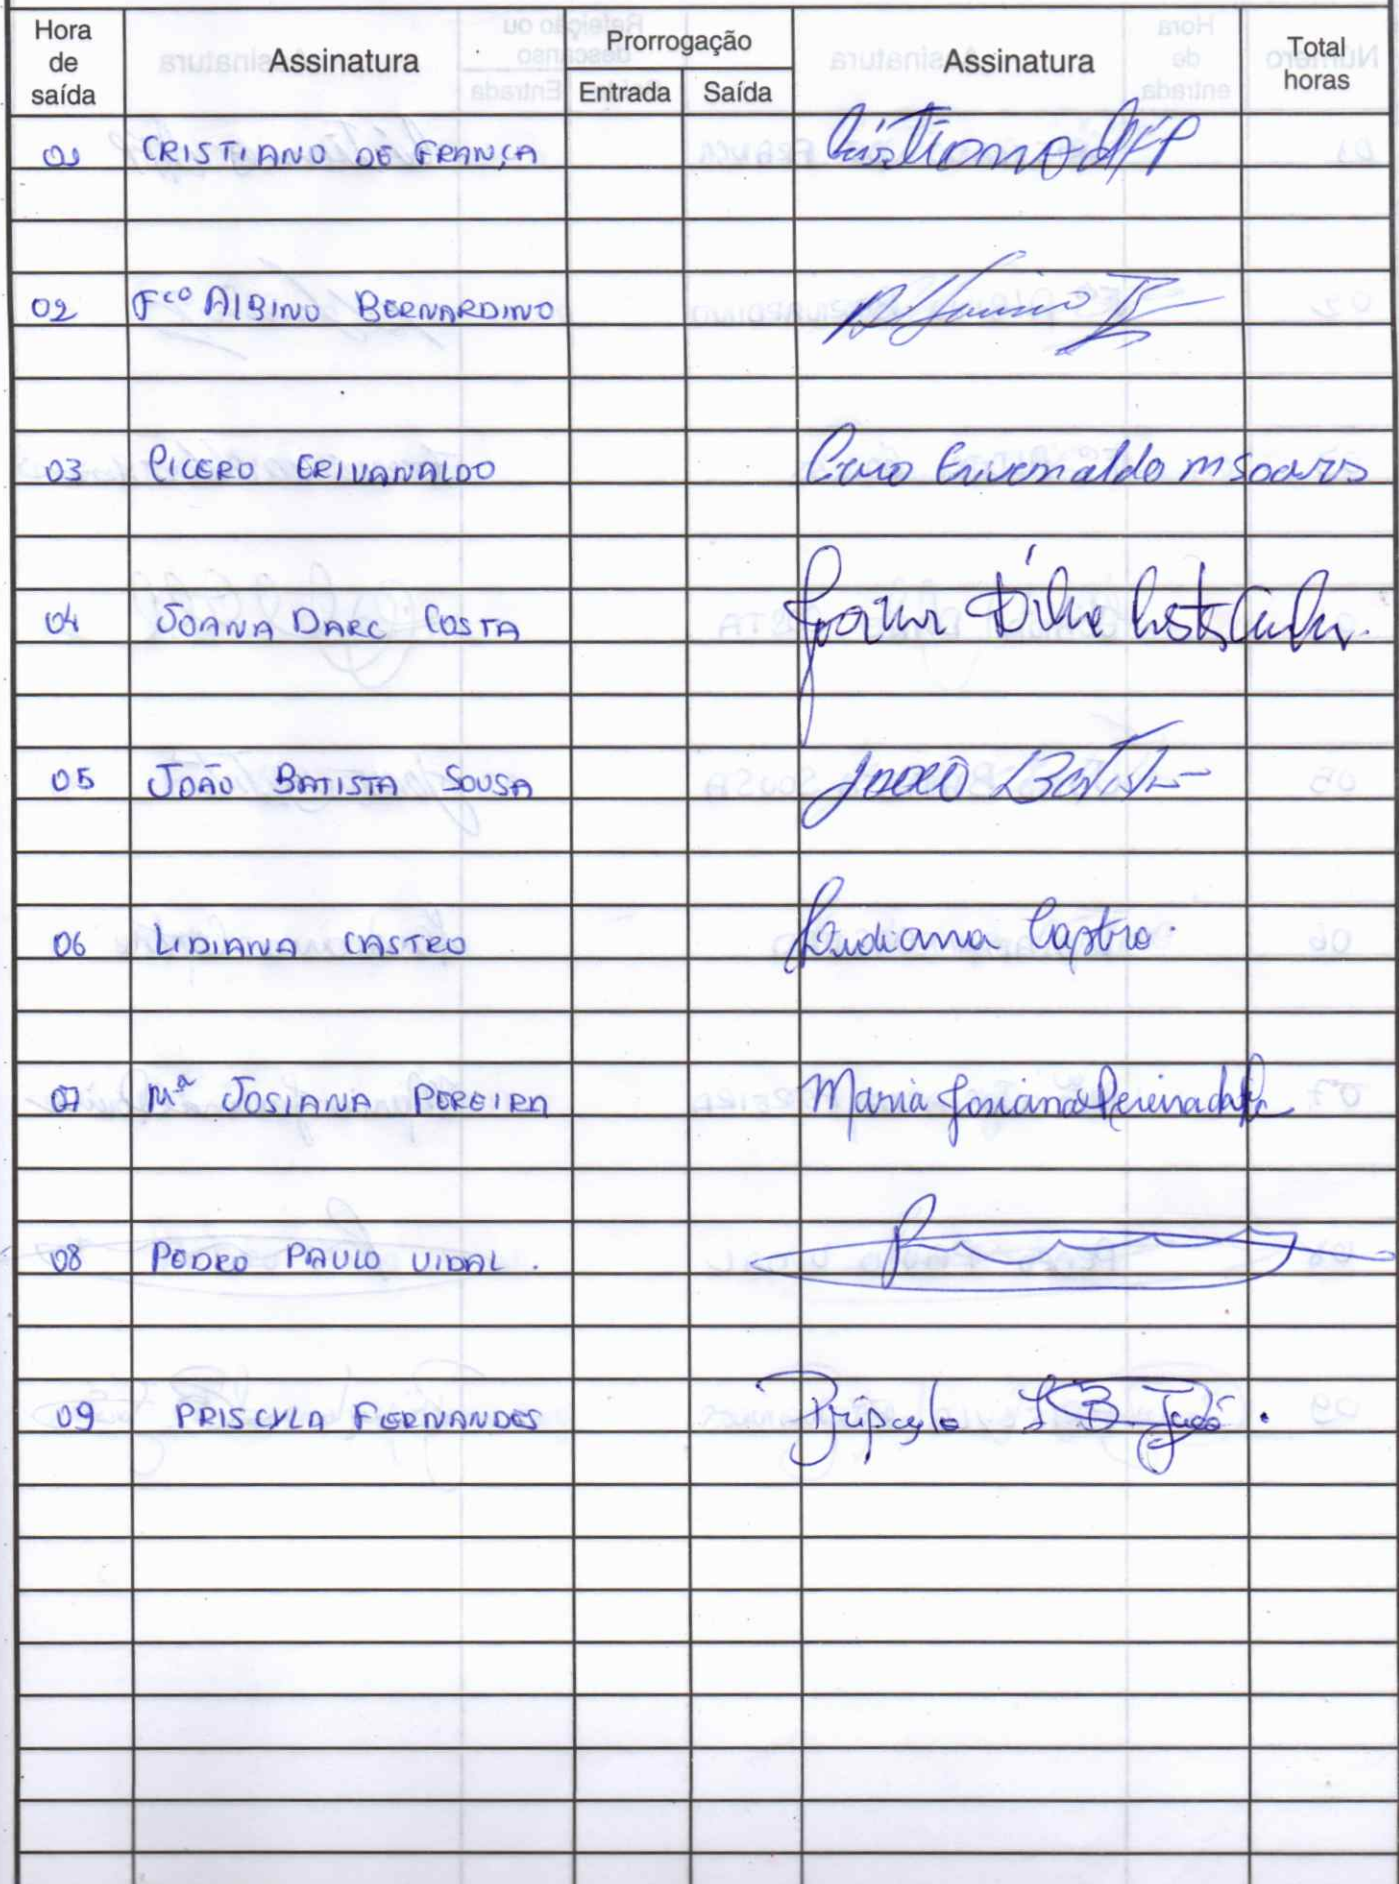 Hora de saída Assinatura Prorrogação Assinatura Total horas
Entrada Saída
01 CRISTIANO DE FRANÇA
02 Fco ALBINO BERNARDINO
03 CICERO ERIVANALDO Cicero Erivanaldo M Soares
04 JOANA DARC COSTA
05 JOÃO BATISTA SOUSA João Batista
06 LIDIANA CASTRO Lidiana Castro.
07 Mª JOSIANA PEREIRA Maria Josiana Pereira da
08 PEDRO PAULO VIDAL.
09 PRISCYLA FERNANDES Priscyla